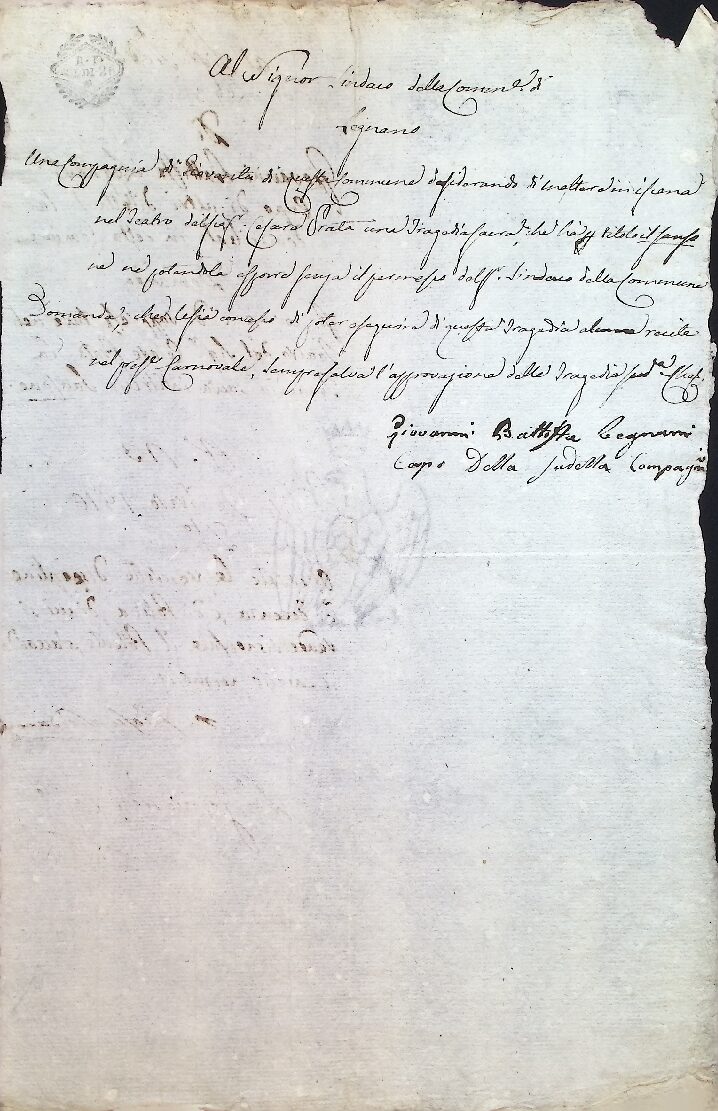 Al Signor Sindaco della Comune di
Legnano
Una Compagnia di Gioventù di questa Commune desiderando di mettere in iscena
nel Teatro del Sig.r Cesare Prata una Tragedia sacra, che ha per titolo il
ne potendola esporre senza il permesso dell S.r Sindaco della Commune
Domanda, che le sia concesso di poter eseguire di questa Tragedia alcune recite
nel pres.e Carnovale, sempre salva l'approvazione della Tragedia sud.a
Giovanni Battista Legnani
Capo Della Sudetta Compagnia